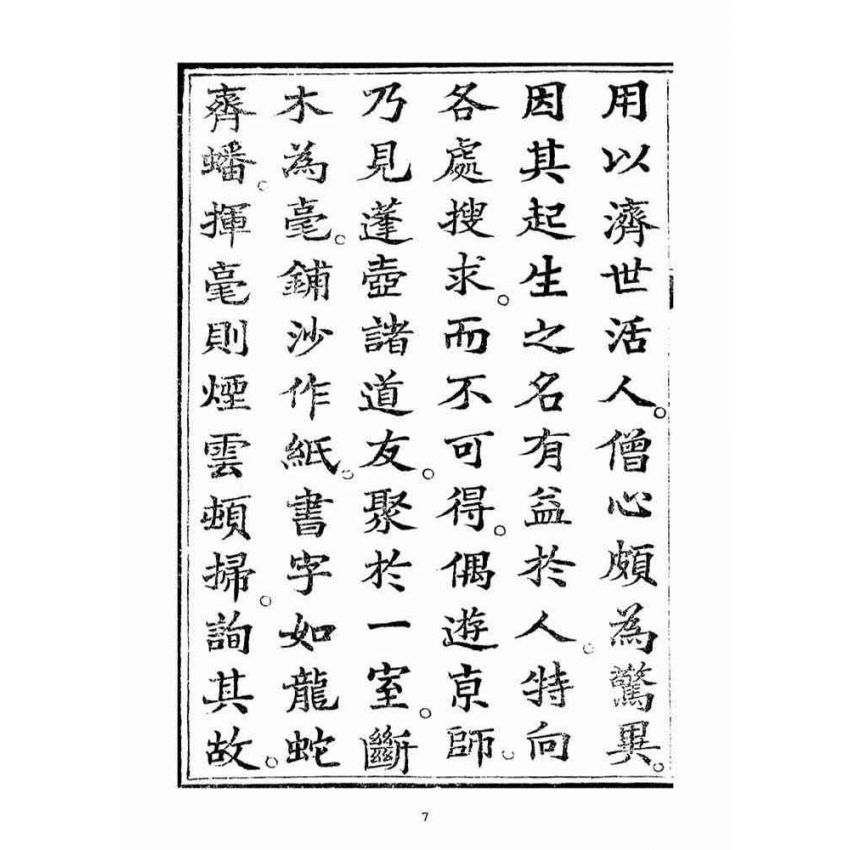 用以濟世活人。僧心頗為驚異。
因其起生之名有益於人。特向
各處搜求。而不可得。偶遊京師。
乃見蓬壺諸道友。聚於一室。斷
木為毫。鋪沙作紙。書字如龍蛇
齊蟠。揮毫則煙雲頓掃。詢其故。
7